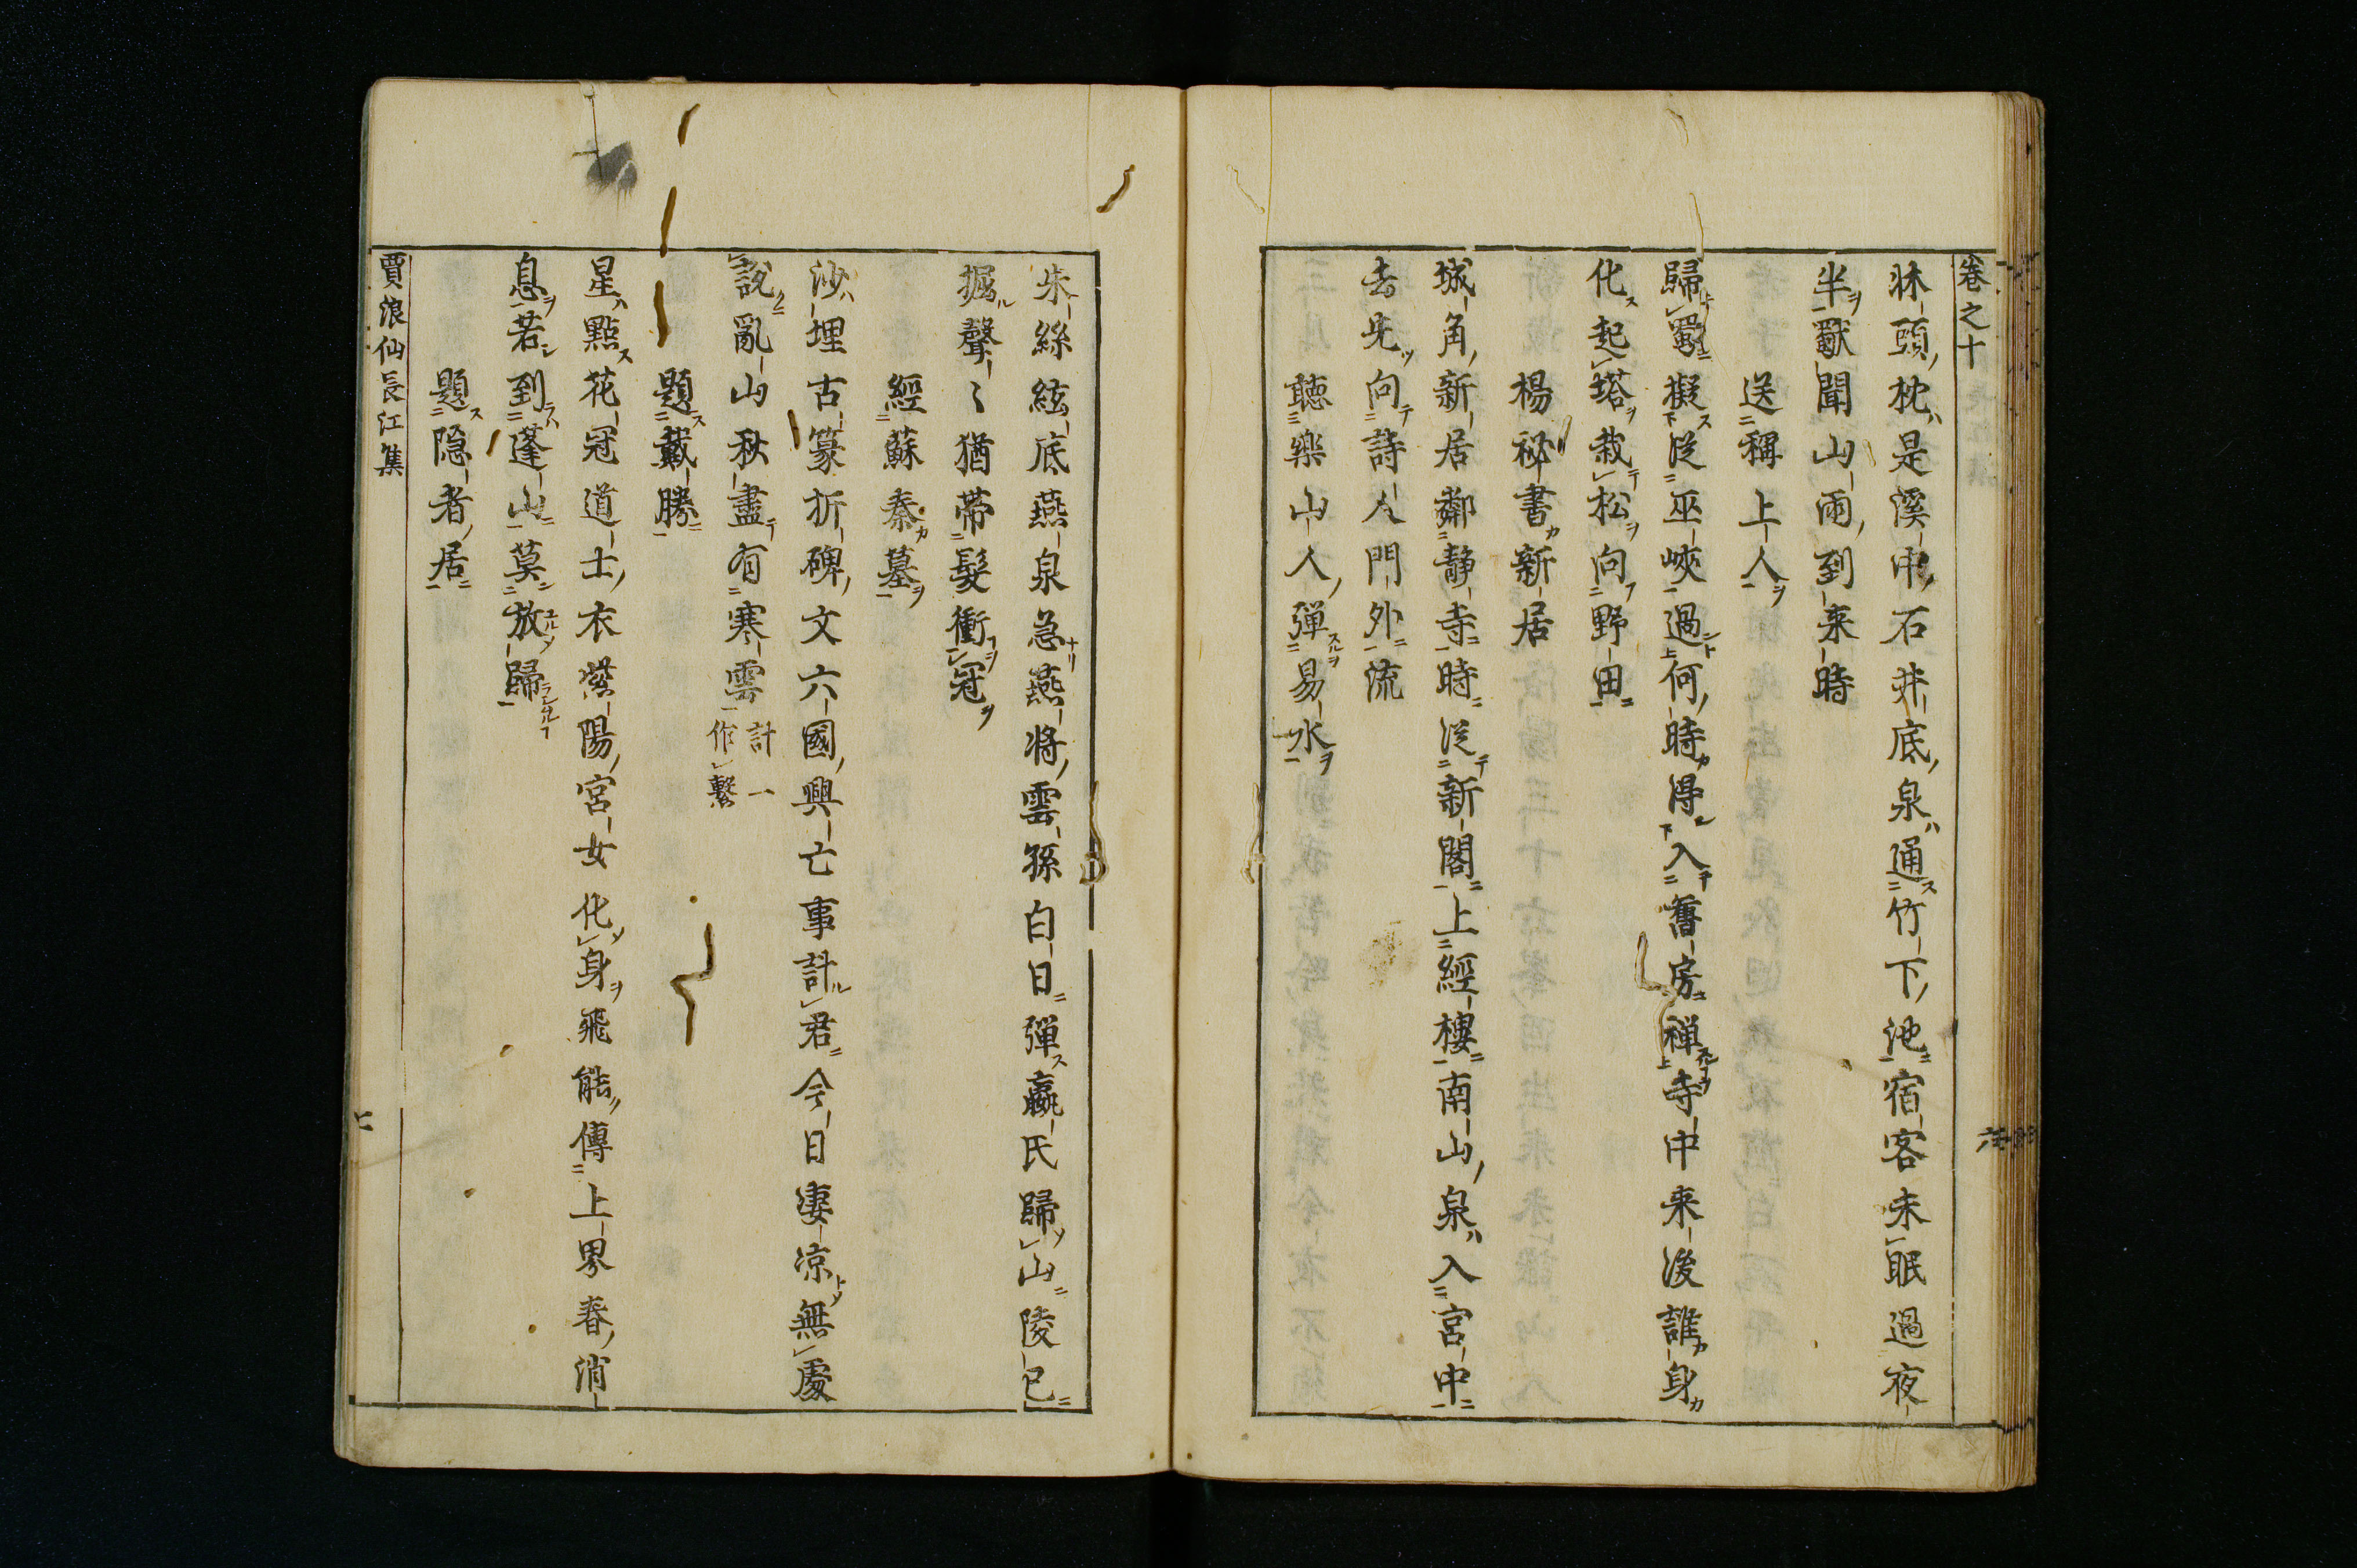 卷之十
牀頭枕是溪中石井底泉通竹下池宿客未眠過夜
半獸聞山雨到来時
送稱上人
歸蜀擬從巫峽過何時得入舊房禅寺中来後誰身
化起塔栽松向野田
楊秘書新居
城角新居鄰静寺時從新閣上經樓南山泉入宮中
去先向詩人門外流
聴樂山人弾易水
朱絲絃底燕泉急燕将雲孫白日弾嬴氏歸山陵已
掘聲〻猶帶髮衝冠
經蘇秦墓
沙埋古篆折碑文六國興亡事計君今日凄凉無處
說亂山秋盡有寒雲計一作繫
題戴勝
星點花冠道士衣紫陽宮女化身飛能傳上界春消
息若到蓬山莫放歸
題隐者居
賈浪仙長江集